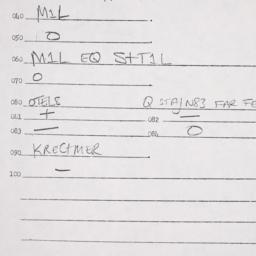 040 M1L
050 O
060 M1L EQ S+T1L
070 O
080 OTELS Q STA/N83 FAR FE
081 + 082 —
083 — 084 O
090 KRECHMER
100 —